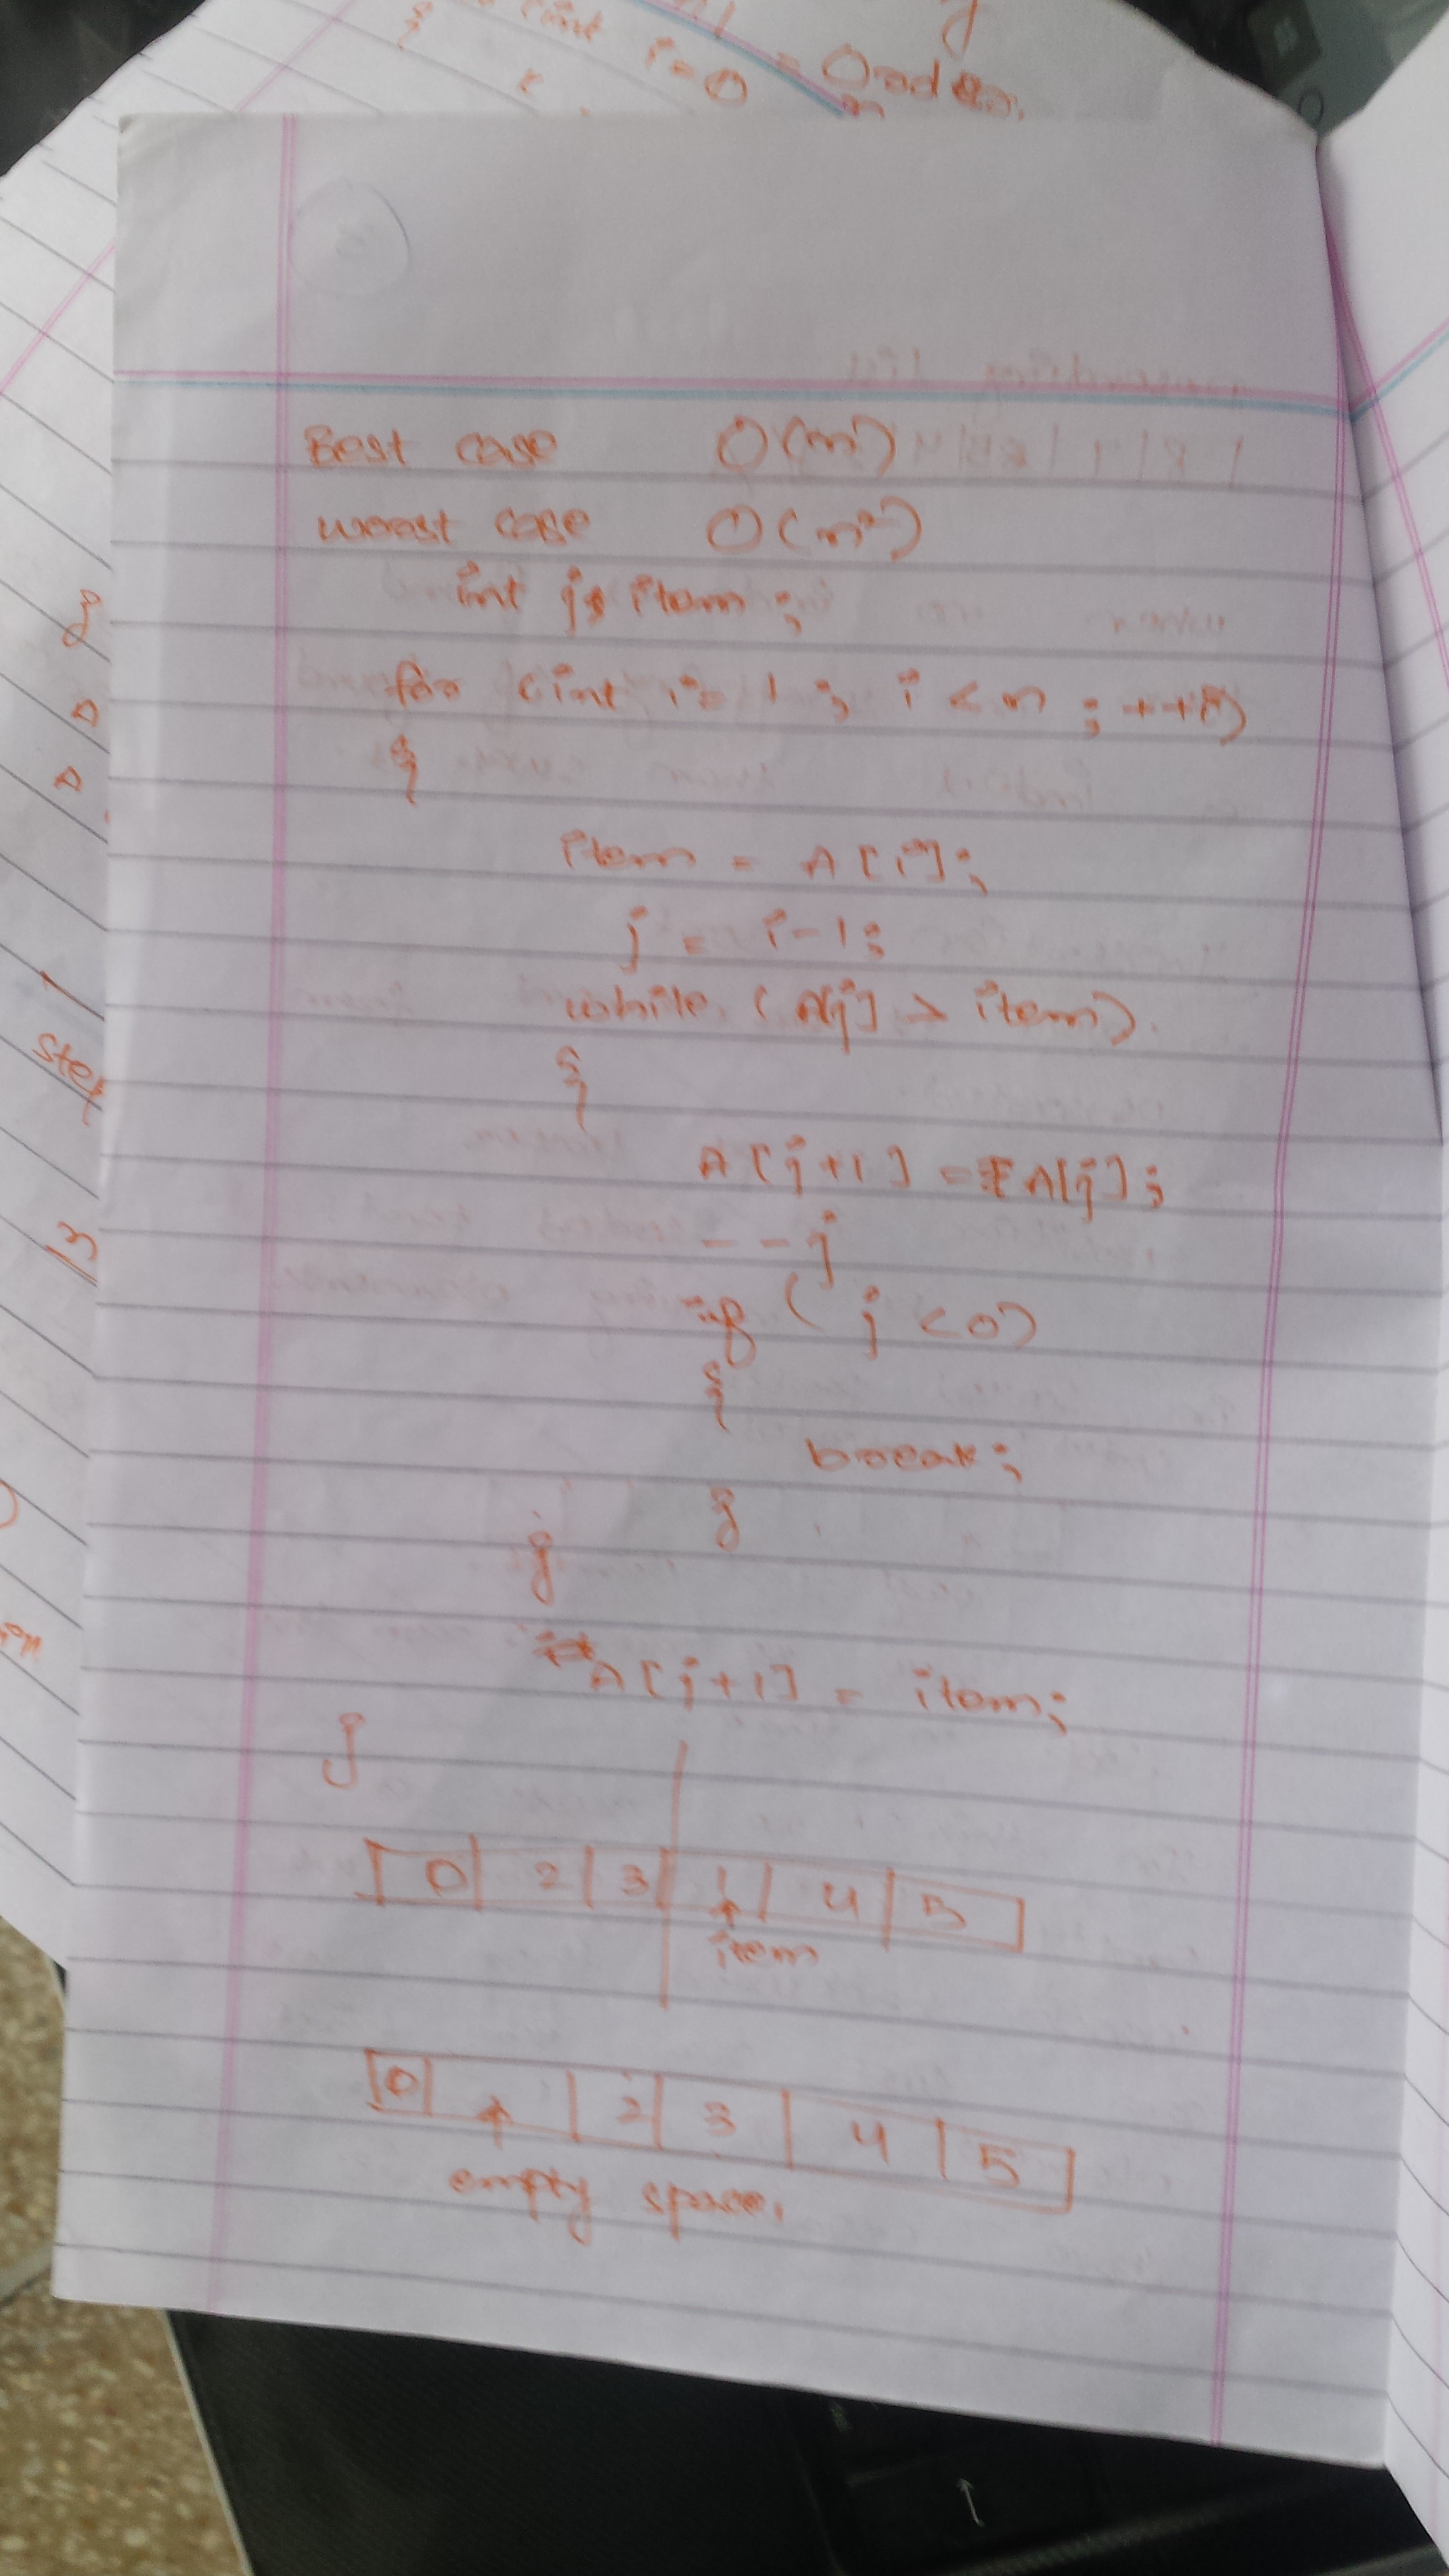 int
i = 0 =
Best case O(n)
worst case O(n²)
int j, item ;
for (int i = 1 ; i < n ; ++i)
{
item = A[i];
j = i-1;
while (A[j] > item)
{
A[j+1] = A[j];
--j
if ( j < 0)
{
break;
}
}
A[j+1] = item;
}
0 2 3 1 4 5
item
0 2 3 4 5
empty space.
step
n